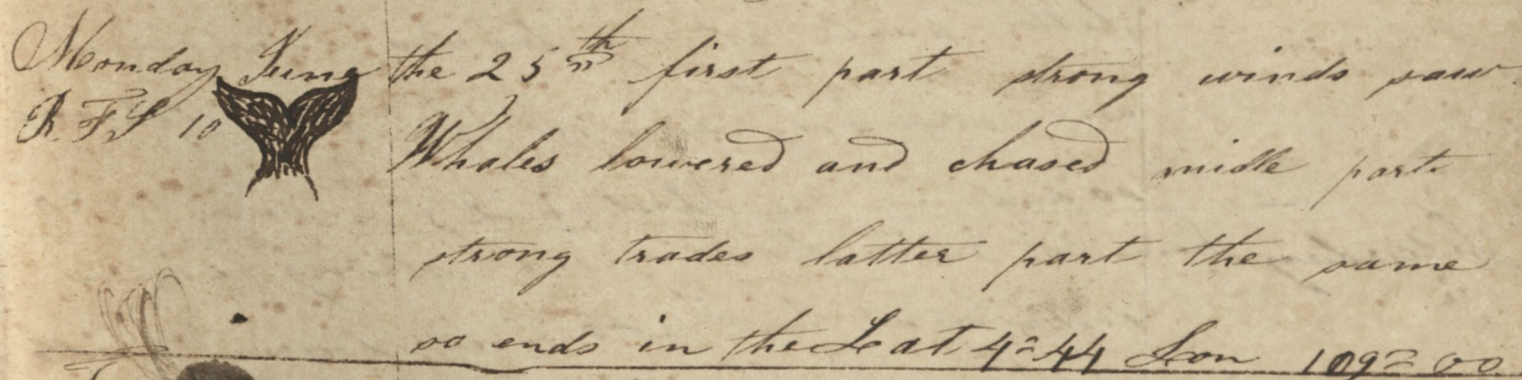 Monday June the 25th first part strong winds saw
R. F. S 10 Whales lowered and chased midle part
strong trades latter part the same
so ends in the Lat 4=44 Lon 109=00